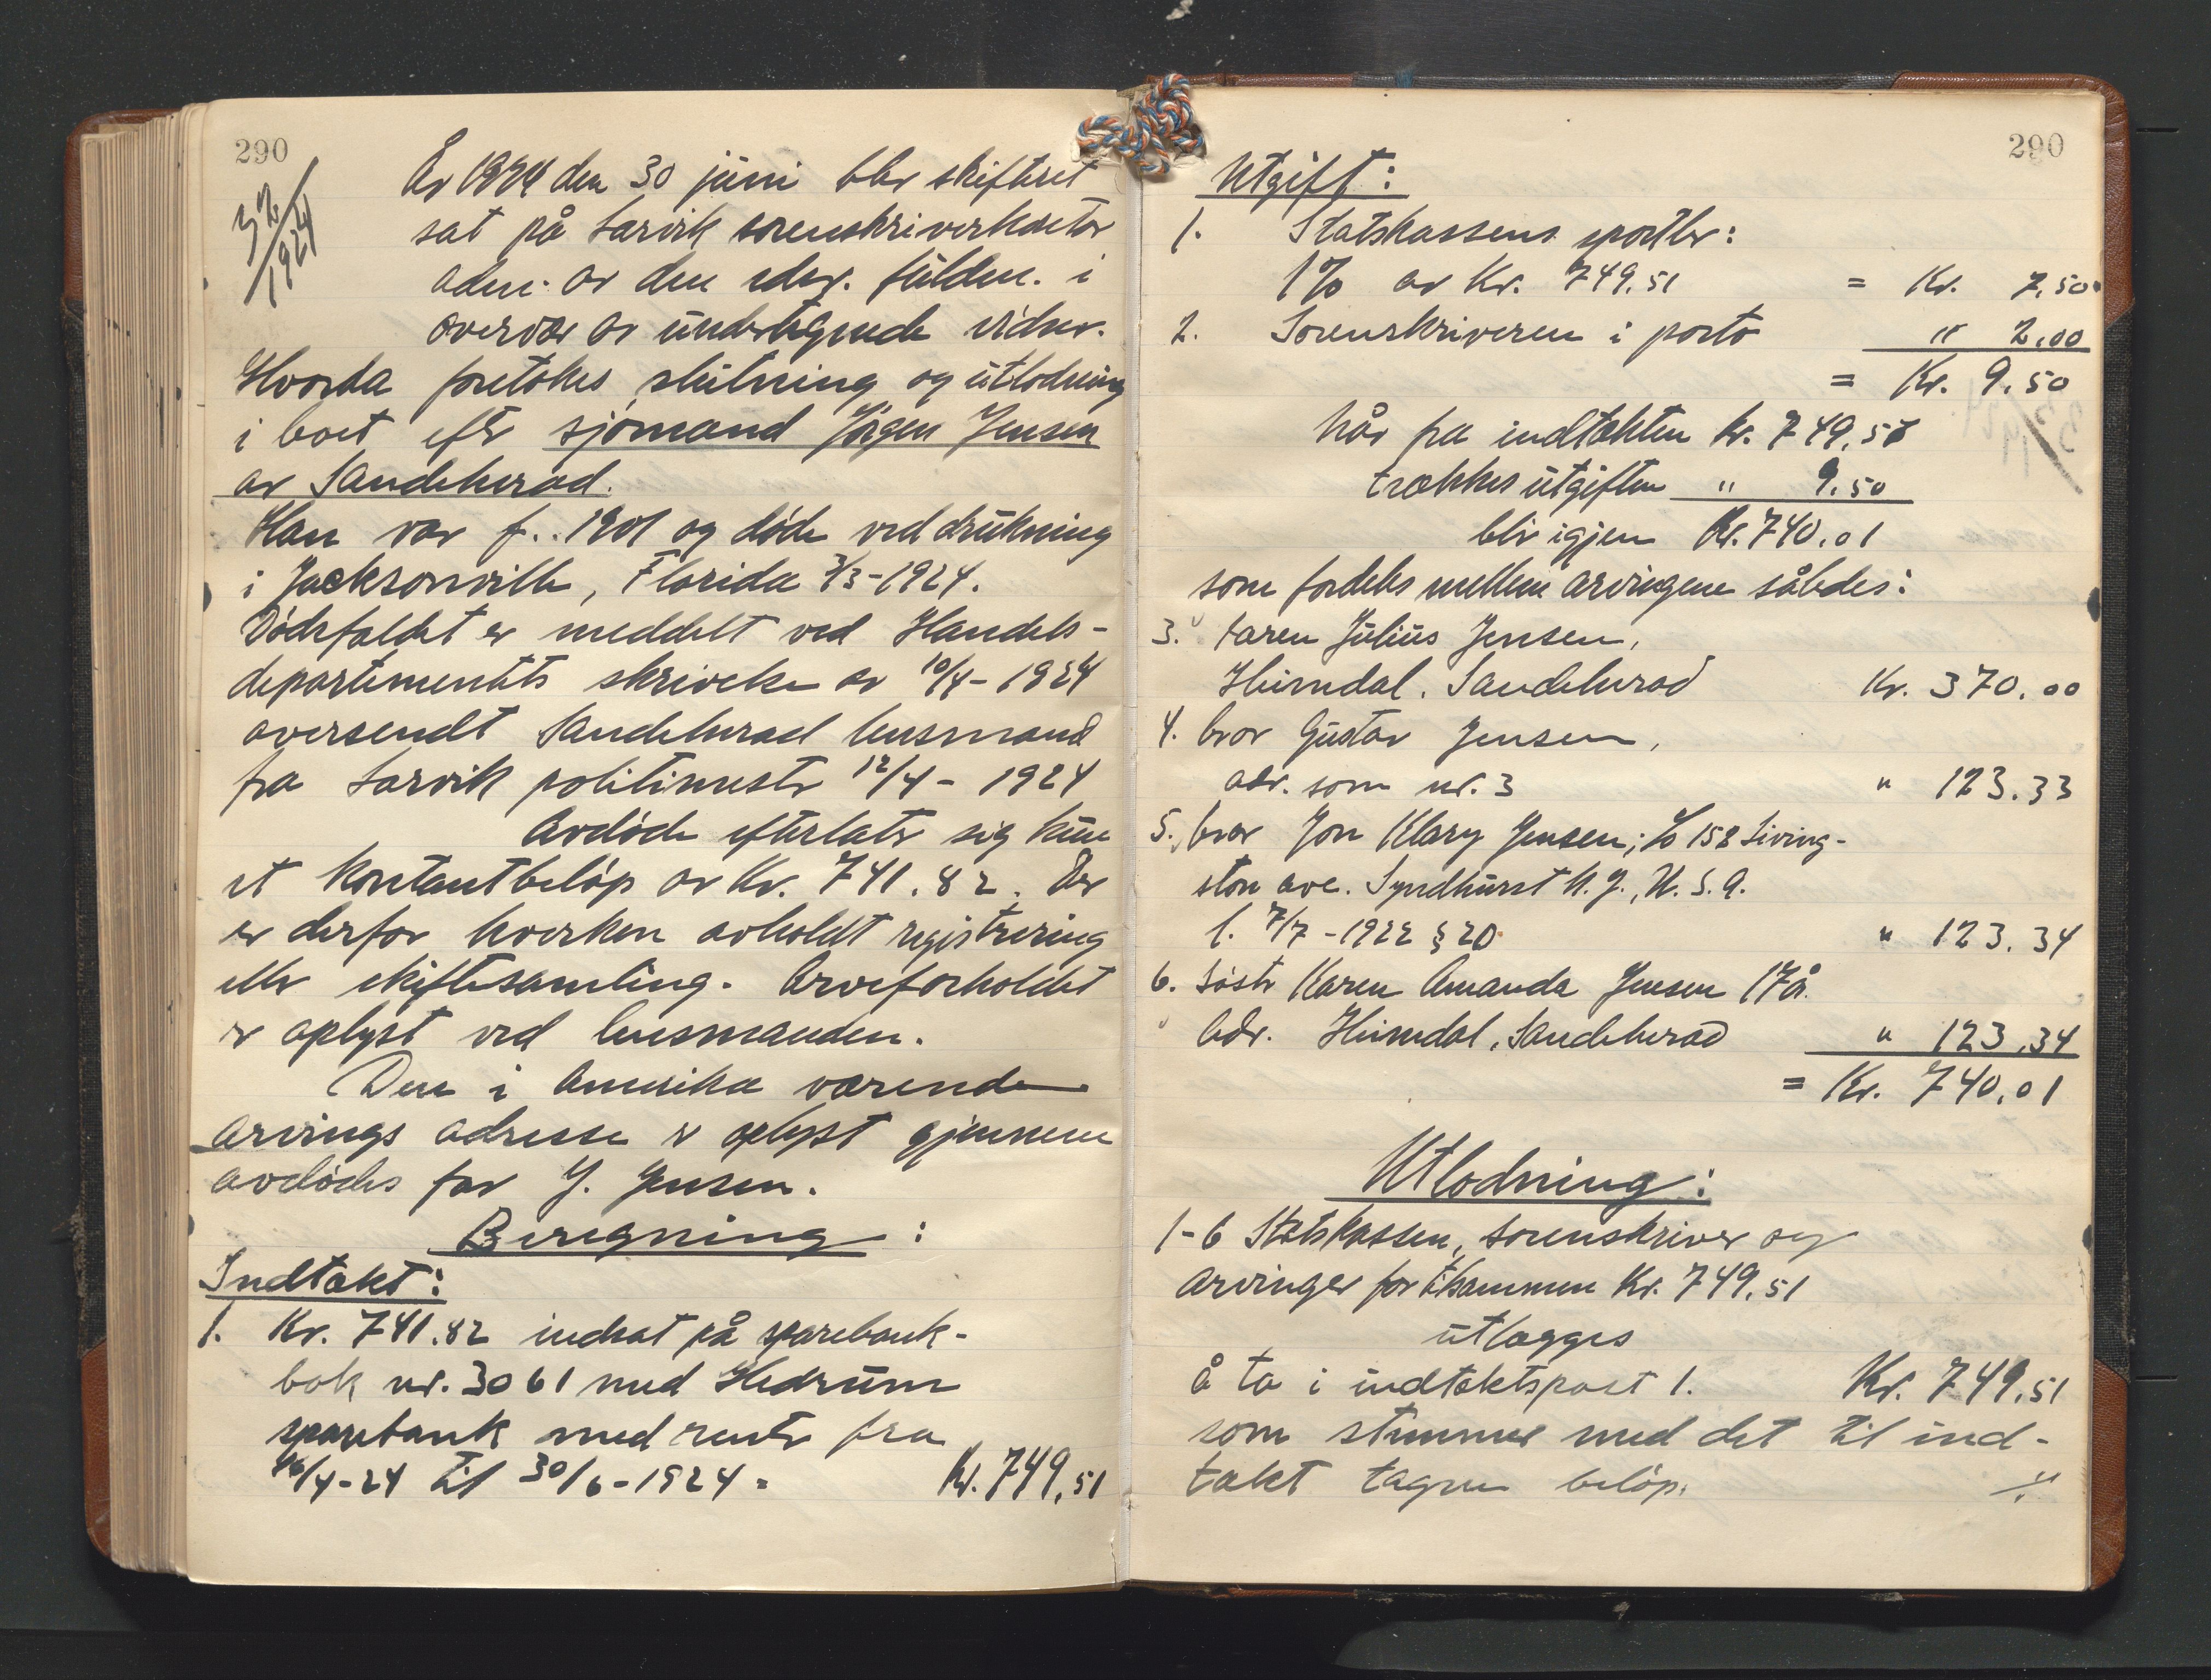 290
30/6
1924
År 1924 den 30 juni blev skifteret
sat på Larvik sorenskriverkontor
adm. av den edsv. fuldm. i
overvær av undertegnede vidner.
Hvorda foretokes slutning og utlodning
i boet efter sjømand Jørgen Jensen
av Sandeherad.
Han var f. 1901 og døde ved drukning
i Jacksonville, Florida 3/3-1924.
Dødsfaldet er meddelt ved Handels-
departementets skrivelse av 10/4-1924
oversendt Sandeherad lensmand
fra Larvik politimester 12/4-1924
Avdøde efterlater sig kun
et kontantbeløp av Kr. 741.82. Der
er derfor hverken avholdt registrering
eller skiftesamling. Arveforholdet
er oplyst ved lensmanden.
Den i Amerika værende
arvings adresse er oplyst gjennem
avdødes far J. Jensen.
Beregning:
Indtækt:
1. Kr. 741.82 indsat på sparebank-
bok nr. 3061 med Hedrum
sparebank med renter fra
16/4-24 til 30/6-1924 = Kr. 749,51
290
Utgift:
1. Statskassens sportler:
1% av Kr. 749,51 = Kr. 7,50
2. Sorenskriveren i porto " 2,00
= Kr. 9,50
Når fra indtækten Kr. 749,51
trækkes utgiften " 9,50
blir igjen Kr. 740,01
som fordeles mellem arvingene således:
3. Faren Julius Jensen,
Heimdal, Sandeherad Kr. 370.00
4. bror Gustav Jensen,
adr. som nr. 3 " 123.33
5. bror Jon Klary Jensen; c/o 158 Living-
ston ave. Lyndhurst N.J., U.S.A.
l. 7/7-1922 § 20 " 123.34
6. Søster Karen Amanda Jensen 17 år
adr. Heimdal, Sandeherad " 123.34
= Kr. 740,01
Utlodning:
1-6 Statskassen, sorenskriver og
arvinger for tilsammen Kr. 749,51
utlægges
å ta i indtæktspost 1. Kr. 749,51
som stemmer med det til ind-
tækt tagne beløp.